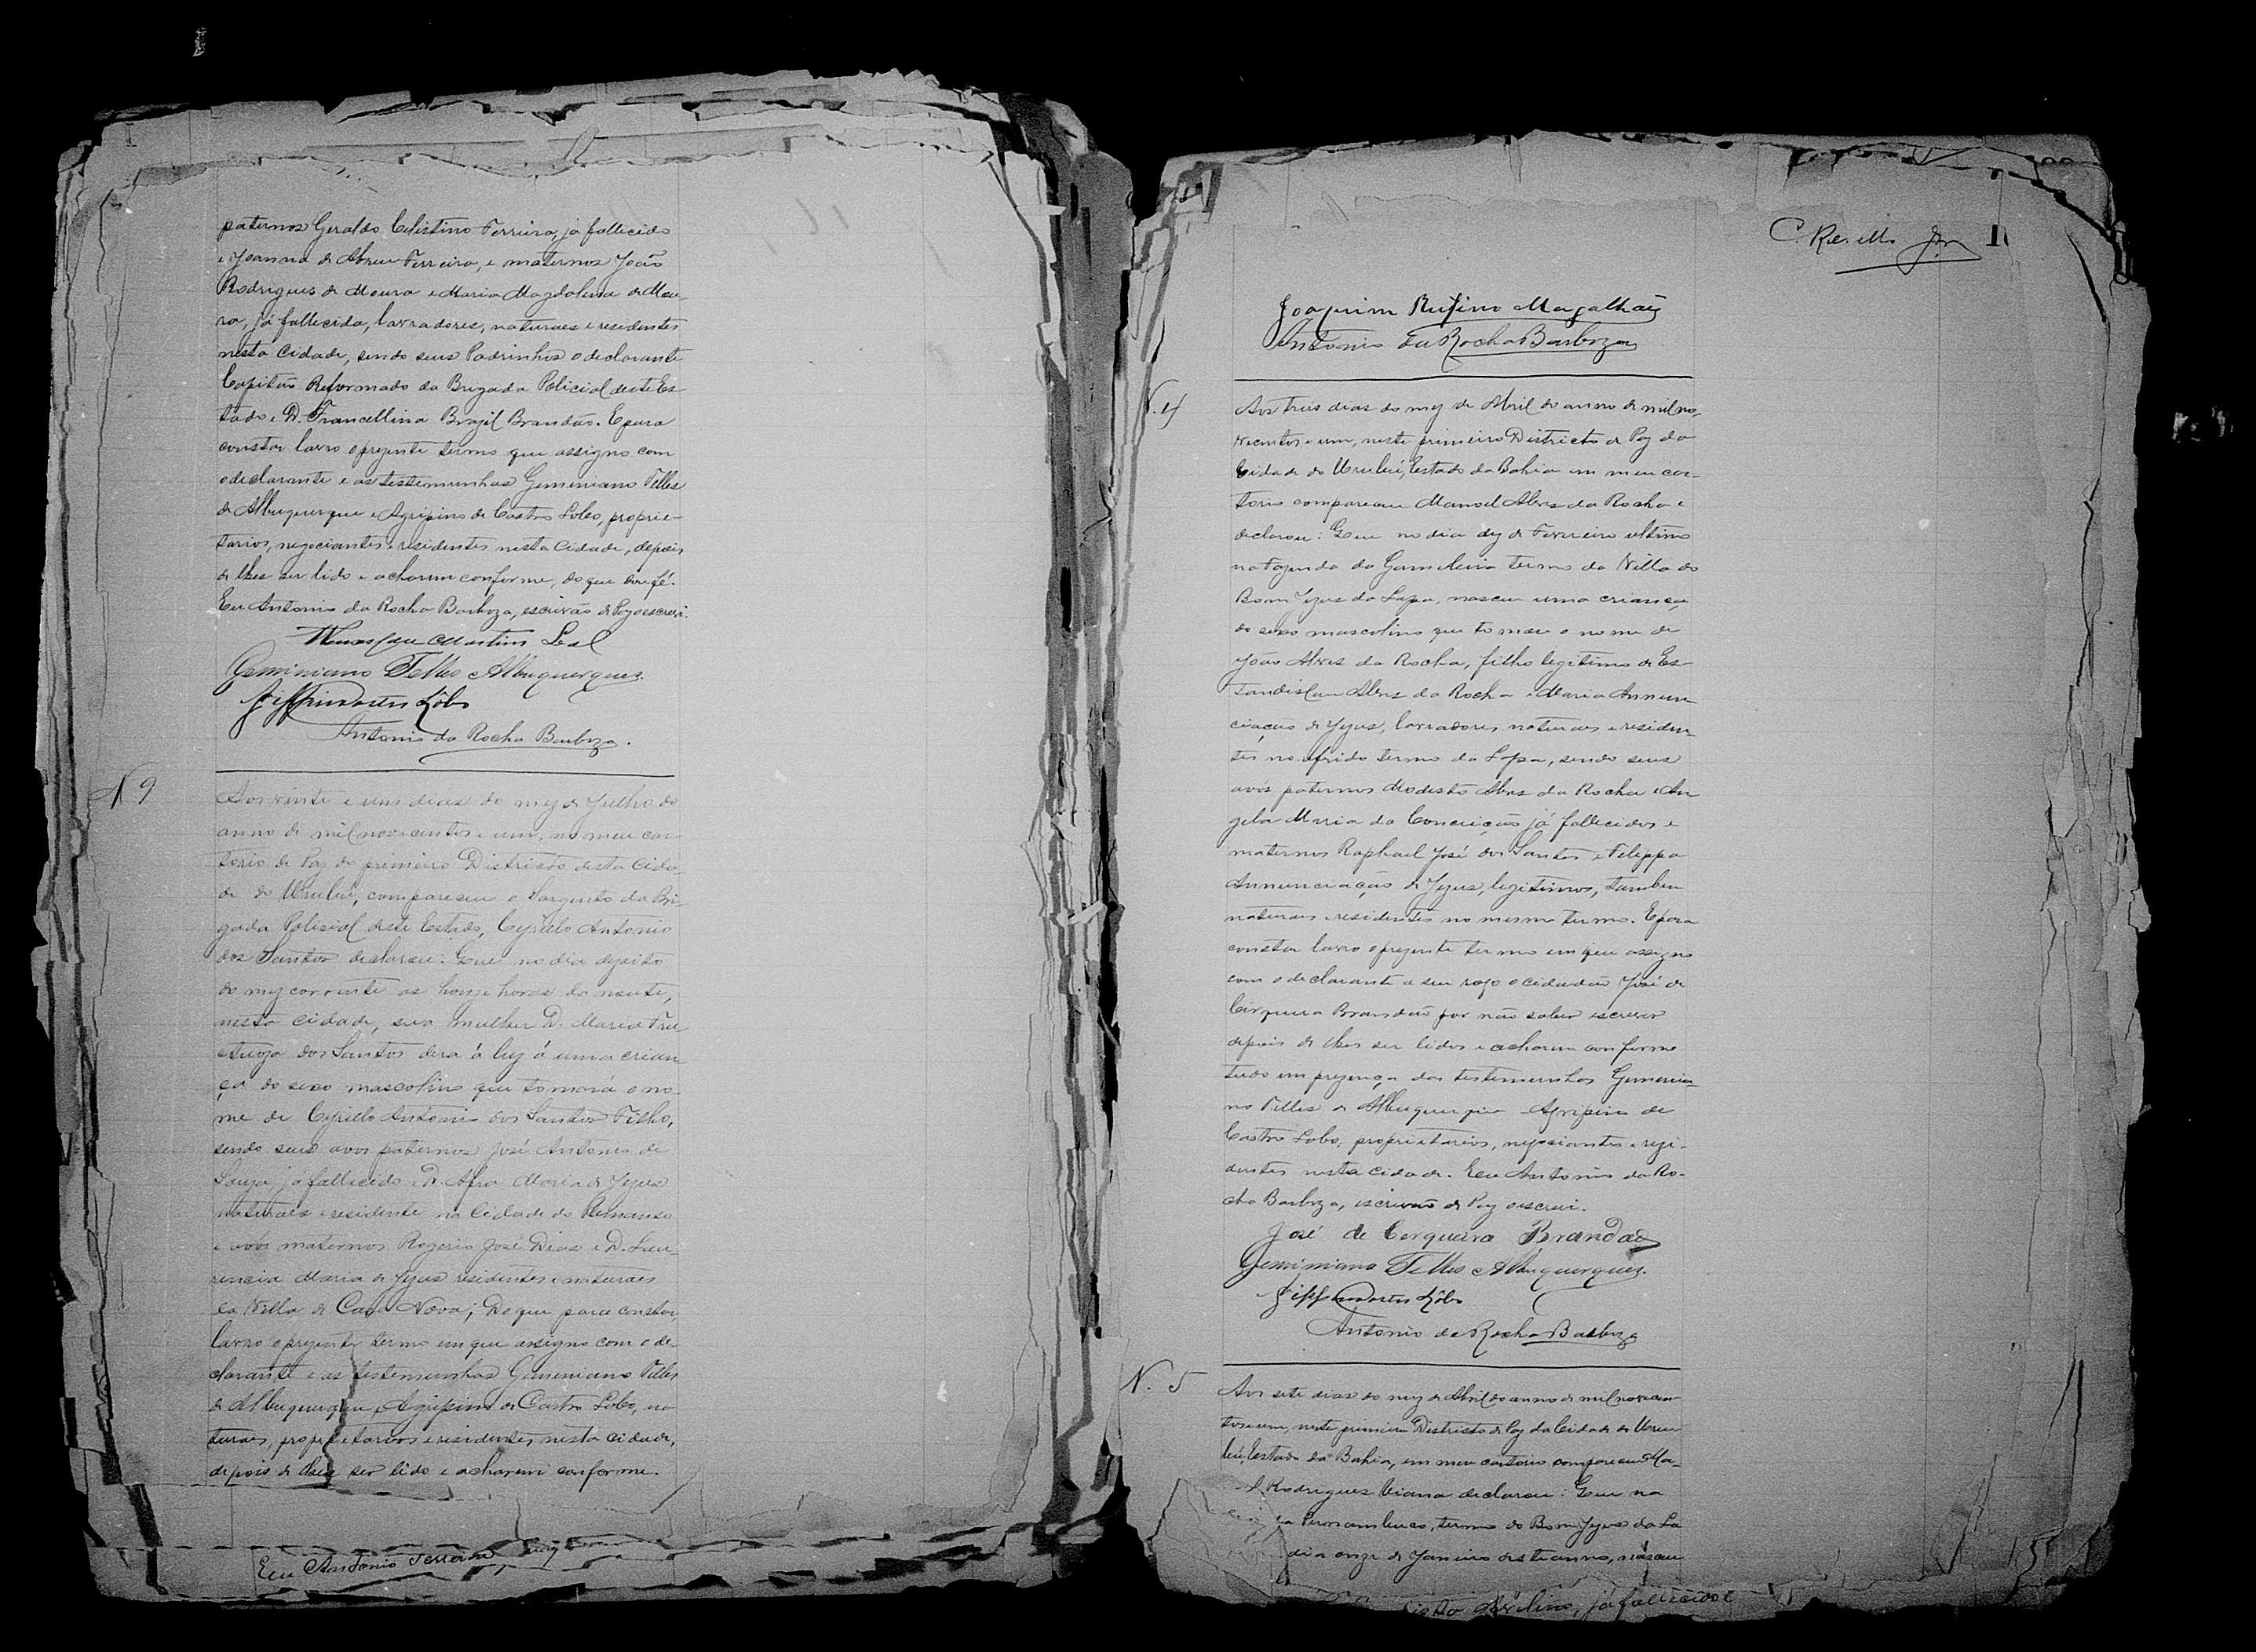 paternos Geraldo Celistino Ferreira, já fallecido
e Joanna de Abreu Ferreira, e maternos João
Rodrigues de Moura e Maria Magdalena de Mou-
ra, já fallecida, lavradores, naturaes e residentes
nesta Cidade, sendo seus Padrinhos o declarante
Capitão Reformado da Brigada Policial deste Es-
tado e D. Francellina Brazil Brandão. E para
constar lavro o prezente termo que assigno com
o declarante e as testemunhas Geminiano Telles
de Albuquerque e Agripino de Castro Lobo, proprie-
tarios, negociantes e residentes nesta Cidade, depois
de lhes ser lido e acharem conforme, do que dou fé.
Eu Antonio da Rocha Barboza, escrivão de Paz o escrevi.
Martins Leal
Geminiano Telles Albuquerque
Lôbo
Antonio da Rocha Barboza.
N 9
Aos vinte e um dias do mez de Julho do
anno de mil novecentos e um, no meu car-
torio de Paz do primeiro Districto desta Cida-
de do Urubú, compareceu o Sargento da Bri-
gada Policial deste Estado, Cyrillo Antonio
dos Santos declarou: Que no dia dezoito
do mez corrente as honze horas da noute,
nesta Cidade, sua mulher D. Maria Fru
ctuoza dos Santos dera á luz á uma crian-
ça do sexo masculino que tomará o no-
me de Cyrillo Antonio dos Santos Filho,
sendo seus avos paternos José Antonio de
Souza, já fallecido e D. Afra Maria de Jezus
naturaes e residente na Cidade do Remanso
e avós maternos Rogerio José Dias e D. Lau-
rencia Maria de Jezus residentes e naturaes
da Villa de Casa Nova; Do que para constar,
lavro o prezente termo em que assigno com o de-
clarante e as testemunhas Geminiano Telles
de Albuquerque e Agripino de Castro Lobo, na
turaes, proprietarios e residentes nesta Cidade,
depois de lhes ser lido e acharem conforme.
Eu Antonio Ferreira
C. Jor
Joaquim Rufino Magalhães
Antonio da Rocha Barboza
N. 4
Aos treis dias do mez de Abril do anno de mil no-
vecentos e um, neste primeiro Districto de Paz da
Cidade do Urubú, Estado da Bahia em meu car-
torio compareceu Manoel Alves da Rocha e
declarou: Que no dia dez de Fevereiro ultimo
na Fazenda da Gamelleira termo da Villa do
Bom Jezus da Lapa, nasceu uma criança
do sexo masculino que tomou o nome de
João Alves da Rocha, filho legitimo de Es-
tandislau Alves da Rocha e Maria Annun
ciação de Jezus, lavradores, naturaes e residen-
tes no referido termo da Lapa, sendo seus
avós paternos Modesto Alves da Rocha e An
gela Maria da Conceição já fallecidos e
maternos Raphael José dos Santos e Felippa
Annunciação de Jezus, legitimos, tambem
naturaes e residentes no mesmo termo. E para
constar lavro o prezente termo em que assigno
com o declarante a seu rogo o cidadão José de
Cirqueira Brandão por não saber escrever
depois de lhes ser lidos e acharem conforme
tudo em prezença das testemunhas Geminia-
no Telles de Albuquerque e Agripino de
Castro Lobo, proprietarios, negociantes e rezi-
dentes nesta Cidade. Eu Antonio da Ro-
cha Barboza, escrivão de Paz o escrevi.
José de Cerqueira Brandão
Geminiano Telles Albuquerque
Lôbo
Antonio da Rocha Barboza
N. 5
Aos sete dias do mez de Abril do anno de mil novecen
tos e um, neste primeiro Districto de Paz da Cidade do Uru-
bú, Estado da Bahia, em meu cartorio compareceu Ma-
Rodrigues Viana declarou: Que na
Pernambuco, termo do Bom Jezus da La
dia onze de Janeiro deste anno, nasceu
já fallecido e